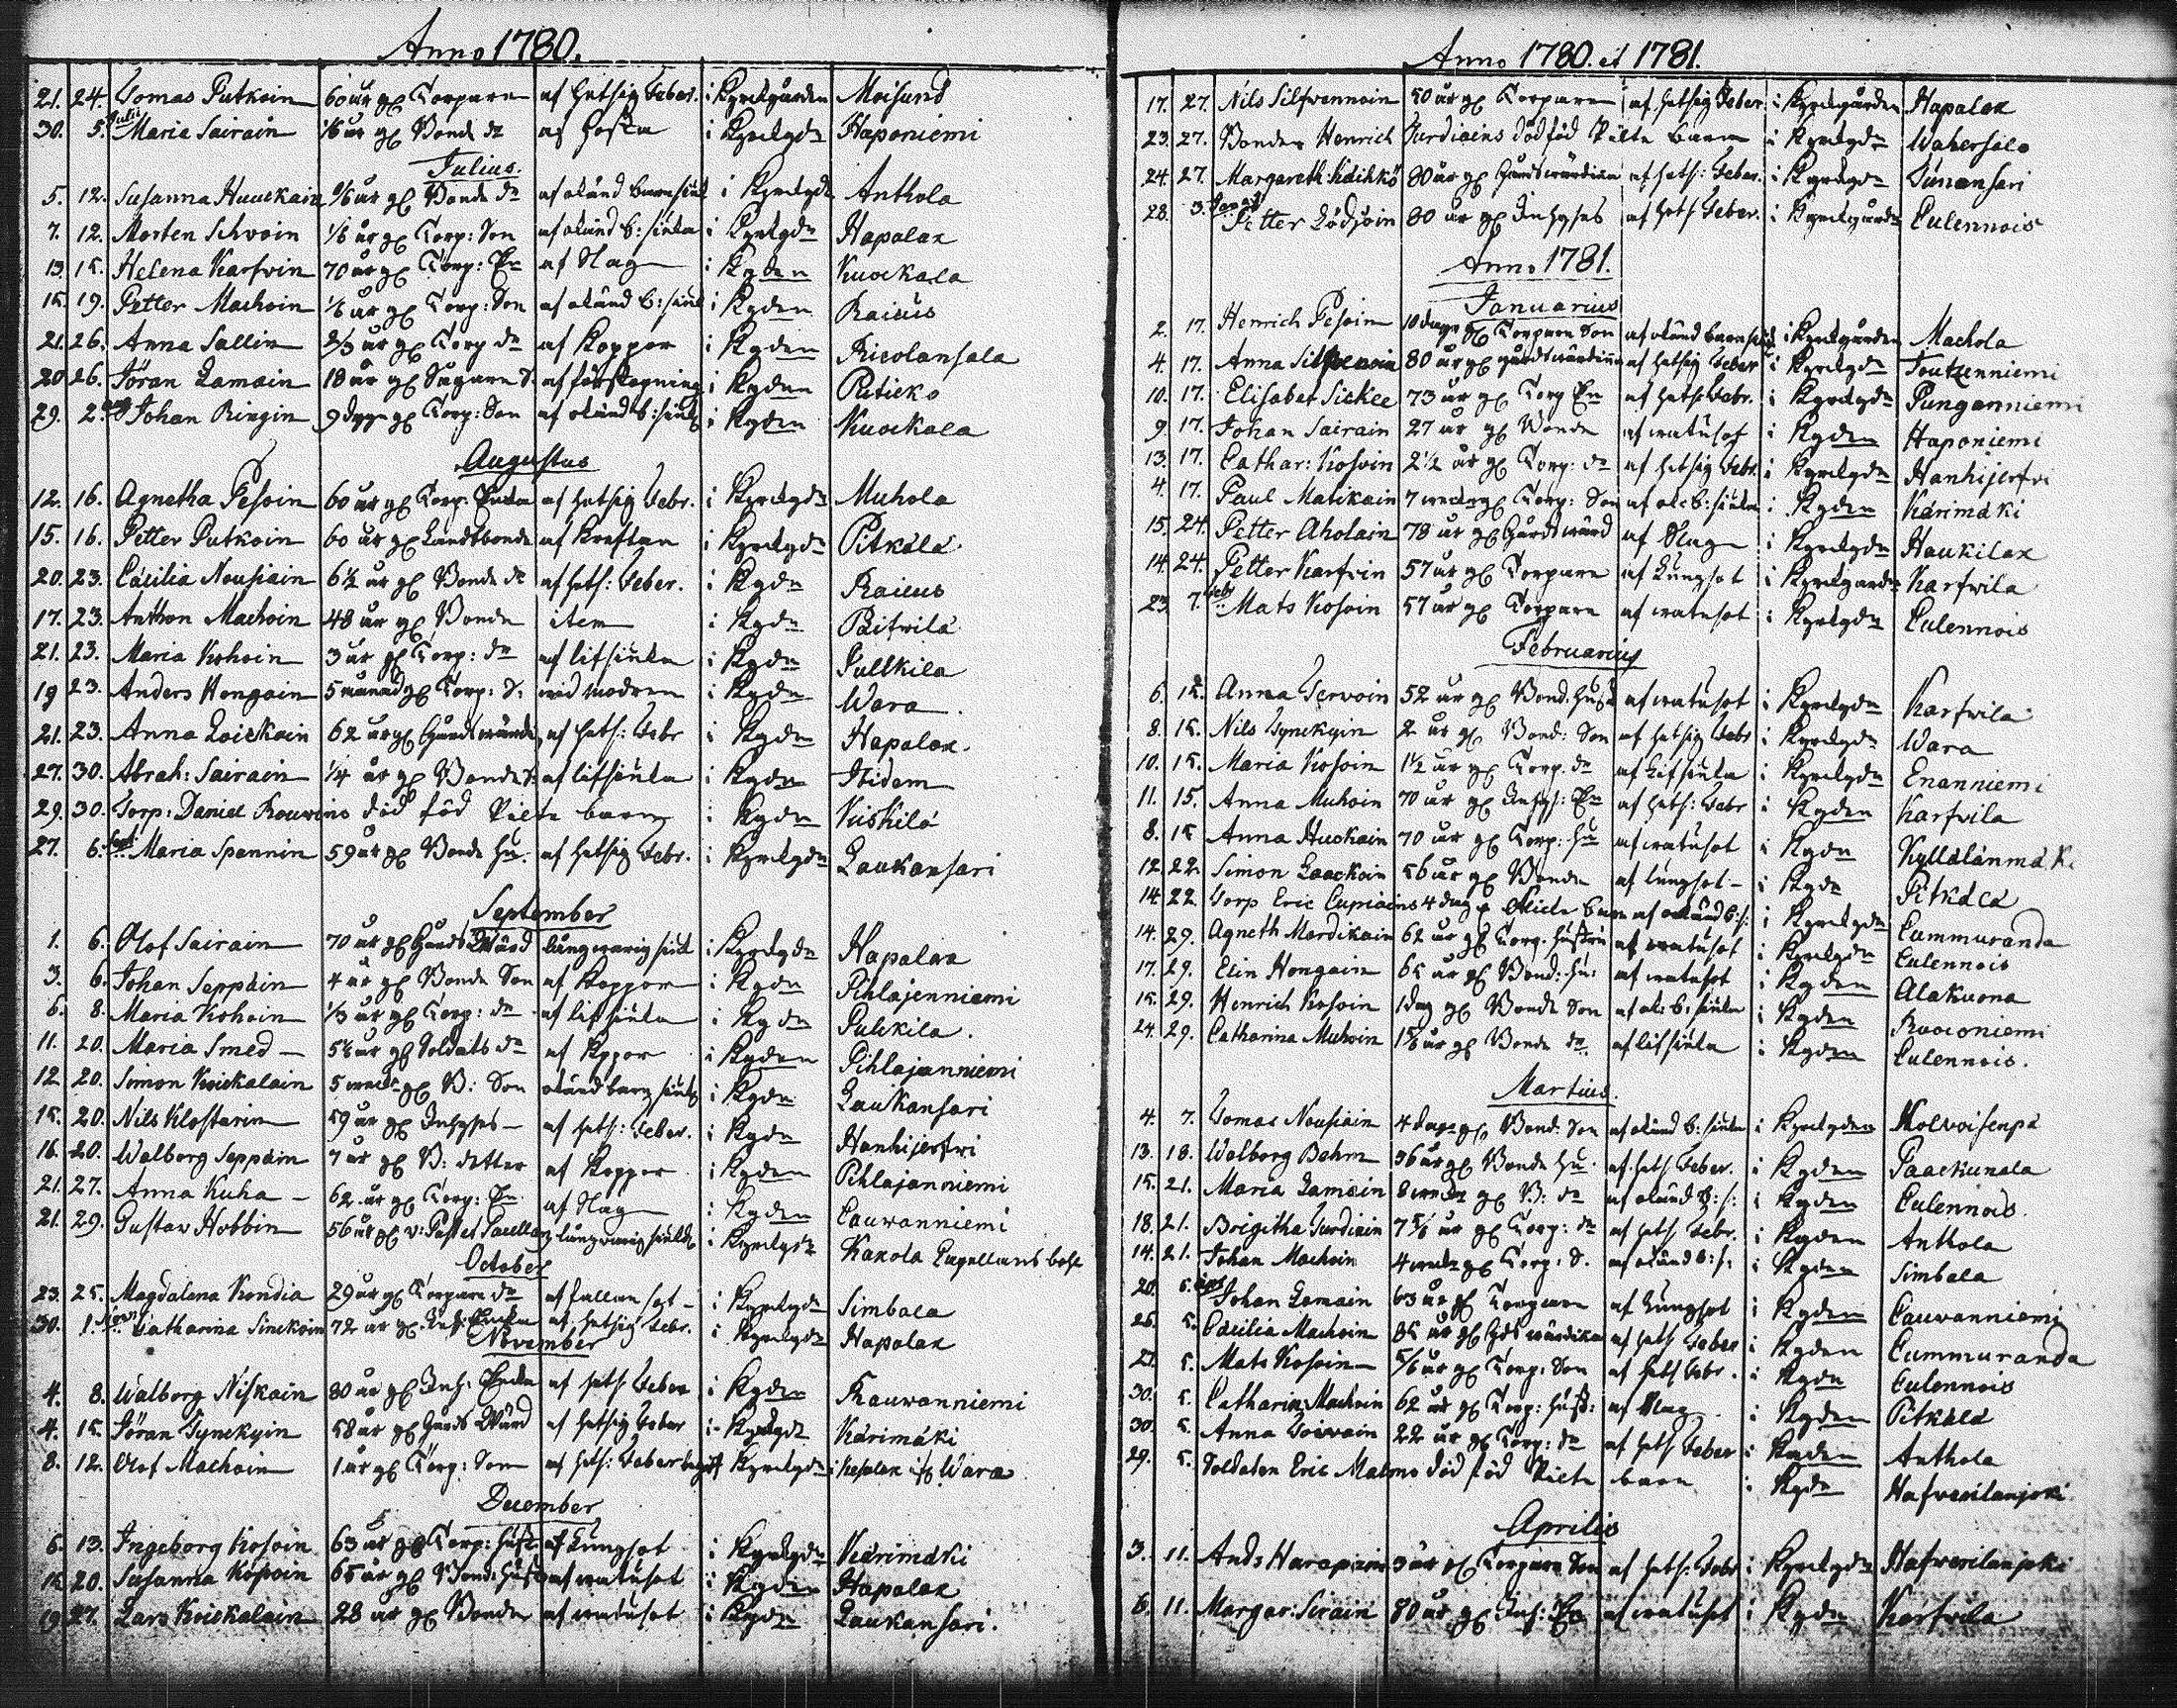 Anno 1780.
21. 24. Tomas Putkoin 60 år gl Torpare af hetsig Feber. i Kyrckgården Moisund
30. 5. Julii Maria Sairain 1/6 år gl Bonde dr af hosta i Kyrckgdn Haponiemi
Julius.
5. 12. Susanna Huuckain 9/6 år gl Bonde dr af okänd barnsiuk i Kyrckgdn Anthola
7. 12. Morten Ihvoin 1/6 år gl Torp: Son af okänd b: siuka i Kyrckgdn Hapalax
13. 15. Helena Karfvin 70 år gl Torp: En af Slag i Kgden Kuockala
15. 19. Petter Machoin 1/6 år gl Torp: Son af okänd b: siuk i Kgden Raicus
21. 26. Anna Sallin 2/3 år gl Torp dr af Koppor i Kgden Ricolansala
20 26. Jöran Lamain 18 år gl Sågare S. af förstopning i Kgden Putickо
29. 2. aug Johan Ringin 9 dygn gl Torp: Son af okänd b: siuk i Kgden Kuockala
Augustus
12. 16. Agnetha Pesoin 60 år gl Torp: Enka af hetsig Febr. i Kyrckgdn Muhola
15. 16. Petter Putkoin 60 år gl Landtbonde af Kräftan i Kyrckgdn Pitkälä
20. 23. Cäcilia Nousiain 6 1/2 år gl Bonde dr af hets: Feber. i Kgdn Raicus
17. 23. Anthon Machoin 48 år gl Bonde item i Kgdn Päifvilä
21. 23. Maria Kohoin 3 år gl Torp: dr af lifsiuka i Kgdn Pullkila
19 23. Anders Hongain 5 månad gl Torp: S: wid modren i Kgdn Wara
21. 23. Anna Loickain 62 år gl Gårdtwärdi af hets: Febr i Kgdn Hapalax
27. 30. Abrah: Sairain 1/4 år gl Bonde S: af lifsiuka i Kgdn Ibidem
29. 30. Torp: Daniel Rouwins död född Pilte barn i Kgdn Kiiskilä
27. 6. Sept Maria Spennin 59 år gl Bonde hu. af hetsig Febr. i Kyrckgdn Laukansari
September
1. 6. Olof Sairain 70 år gl Gårds Wärd långwarig siuk i Kyrckgdn Hapalax
3. 6. Johan Seppäin 4 år gl Bonde Son af Koppor i Kgdn Pihlajenniemi
6. 8. Maria Kohoin 1/3 år gl Torp: dr af lifsiuka i Kgdn Pulckila
11. 20. Maria Smed 5 1/6 år gl Soldats dr af Koppor i Kgden Pihlajanniemi
12 20. Simon Koickalain 5 weckr gl B: Son okänd barn siuk i Kgdn Laukansari
15. 20. Nils Klostarin 59 år gl Inhyses af hets: Feber. i Kgdn Hanhijerfvi
16. 20. Walborg Seppäin 7 år gl B: dotter af Koppor i Kgden Pihlajanniemi
21. 27. Anna Kuha 62 år gl Torp: En. af Slag i Kgden Cauwanniemi
21. 29. Gustav Hobbin 56 år gl v: Past et Pacellan långwarig siuk i Kyrckgdn Kakola Capellans bohl
October
23. 25. Magdalena Kondia 29 år gl Torpare dr af fallan sot i Kyrckgdn Simbala
30. 1. Nov Catharina Sinckoin 72 år gl Inh: Encka af hetsig Febr. i Kyrckgdn Hapalax
November
4. 8. Walborg Niskain 80 år gl Inh: Encka af hets Feber i Kgden Rauwanniemi
4. 15. Jöran Tynckyin 58 år gl Gårds Wärd af hetsig Feber i Kyrckgdn Kärimäki
8. 12. Olof Machoin 1 år gl Torp: Son af hets: Feber i Kyrckgdn Wara
December
6. 13. Ingeborg Kosoin 63 år gl Torp: hust af Lungsot i Kyrckgdn Kärimäki
15 20. Susanna Kosoin 65 år gl Bond: hust af watusot i Kgden Hapalax
19 27. Lars Koickalain 28 år gl Bonde af watusot i Kgdn Laukansari.
Anno 1780. et 1781.
17. 27. Nils Silfvennoin 50 år gl Torpare af hetsig Feber i Kyrckgården Hapalax
23. 27. Bonden Henrich Jurdiains död född Pilte barn i Kyrckgdn Wahersalo
24. 27. Margareth: Käihkö 80 år gl Gårdtwärdinna af hets: Feber. i Kyrckgdn Simansari
28. 3. Petter Lödjöin 80 år gl Inhyses af hets Feber. i Kyrckgårdn Culennois
Anno 1781.
Januarius
2. 17. Henrich Pesoin 10 dagr gl Torpare Son af okänd barnsiuk i Kyrckgården Machola
4. 17. Anna Silfvenoin 80 år gl gårdtwärdinna af hetsig Feber i Kyrckgdn Toutzenniemi
10. 17. Elisabet Sickee 73 år gl Torp En af hets: Febr. i Kyrckgdn Punganniemi
9. 17. Johan Sairain 27 år gl Bonde af watusot i Kgden Haponiemi
13. 17. Cathar: Kosoin 2 1/2 år gl Torp: dr af hetsig Febr. i Kyrckgdn Hanhijerfvi
4. 17. Paul Malikain 7 weckr gl Torp: Son af ok b: siuka i Kgden Kärimäki
15. 24. Petter Aholain 78 år gl Gårdtwärd af Slag i Kyrckgdn Haukilax
14 24. Petter Karfvin 57 år gl Torpare af Lungsot i Kyrckgardn Karfvila
23 7. Febr Mats Kosoin 57 år gl Torpare af watusot i Kyrckgdn Culennois
Februarius
6. 15. Anna Tervoin 52 år gl Bond. hust af watusot i Kyrckgdn Karfvila
8. 15. Nils Tynckyin 2 år gl Bond: Son af hetsig Febr i Kyrckgdn Wara
10. 15. Maria Kosoin 1 1/2 år gl Torp. dr af Lifsiuka i Kyrckgdn Enanniemi
11. 15. Anna Muhoin 70 år gl Inhys: En af hets: Febr i Kgden Karfvila
8. 15 Anna Huckain 70 år gl Torp: hu af watusot i Kgdn Kyllälänmäki
12. 22. Simon Laackoin 56 år gl Bonde af lungsot i Kgdn Pitkälä
14 22 Torp Eric Cupiains 4 dag gl Flicke barn af okänd b: s: i Kyrckgdn Cummuranda
14. 29. Agneth Mardikain 62 år gl Torp. hustru af watusot i Kyrckgdn Culennois
17. 29. Elin Hongain 65 år gl Bond: hu: af watusot i Kgden Alakuona
15. 29. Henrich Kosoin 1 dag gl Bonde Son af ok: b: siuka i Kgden Ruoconiemi
24. 29. Catharina Muhoin 1 5/6 år gl Bonde dr. af lifsiuka i Kgden Culennois.
Martius.
4. 7. Tomas Nousiain 4 dagr gl Bond: Son af okänd b: siuka i Kyrckgden Kolvoisenpä
13. 18. Walborg Behm 36 år gl Bonde hu. af hets Feber. i Kgden Paackunala
15. 21. Maria Lamain 8 weckr gl B: dr af okänd B: s: i Kgden Culennois.
18. 21. Brigitha Jurdiain 7 5/6 år gl Torp: dr af hets Febr. i Kgden Anthola
14. 21. Johan Machoin 4 weckr gl Torp: S. af okänd b: s: i Kgden Simbala
20. 5. apr Johan Lamain 63 år gl Torpare af Lungsot i Kgden Cauvanniemi
26. 5. Cäcilia Machoin 85 år gl Gdtwärdinna af hets Feber i Kgden Cummuranda
21. 5. Mats Kosoin 5/6 år gl Torp: Son af hets Febr. i Kgdn Culennois
30. 5. Catharin: Machoin 62 år gl Torp: hust: af Slag i Kgden Pitkälä
30. 5. Anna Toivain 22 år gl Torp: dr af hets Feber i Kgden Anthola
29. 5. Soldaten Eric Malms död född Pilte barn i Kgdn Hafverilanjoki
Aprilis
3. 11. Ands Harapain 3 år gl Torpare Son af hets: Febr i Kyrckgdn Hafverilanjoki
6. 11. Margar: Sirain 80 år gl Inh: En af watusot i Kgdn Karfvila